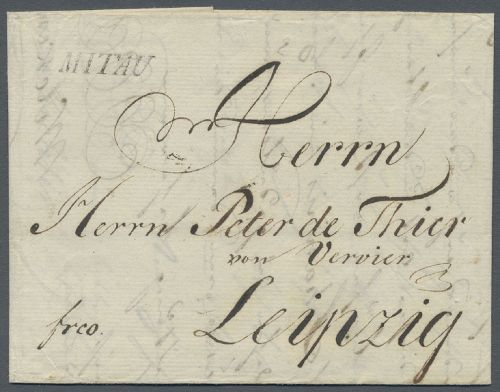 MITAU
Herrn
Herrn Peter de Thier
von Vervier
Leipzig
frco.